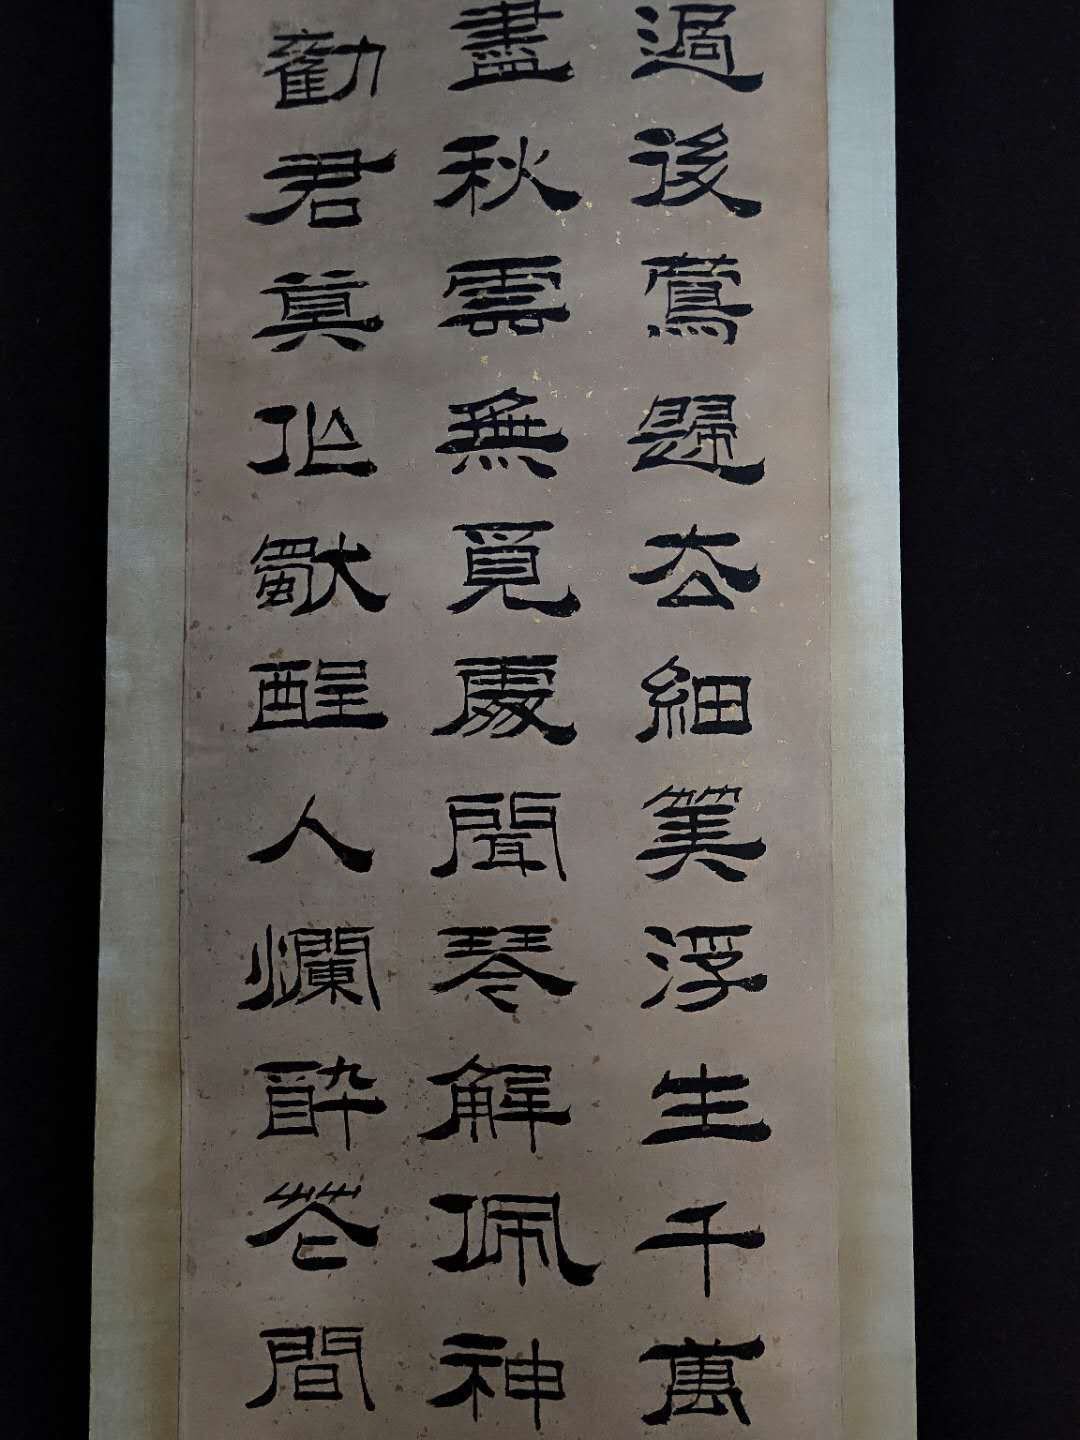 過後鶯歸去細筭浮生千萬
盡秋雲無覓處聞琴解佩神
勸君莫作獨醒人爛醉花間